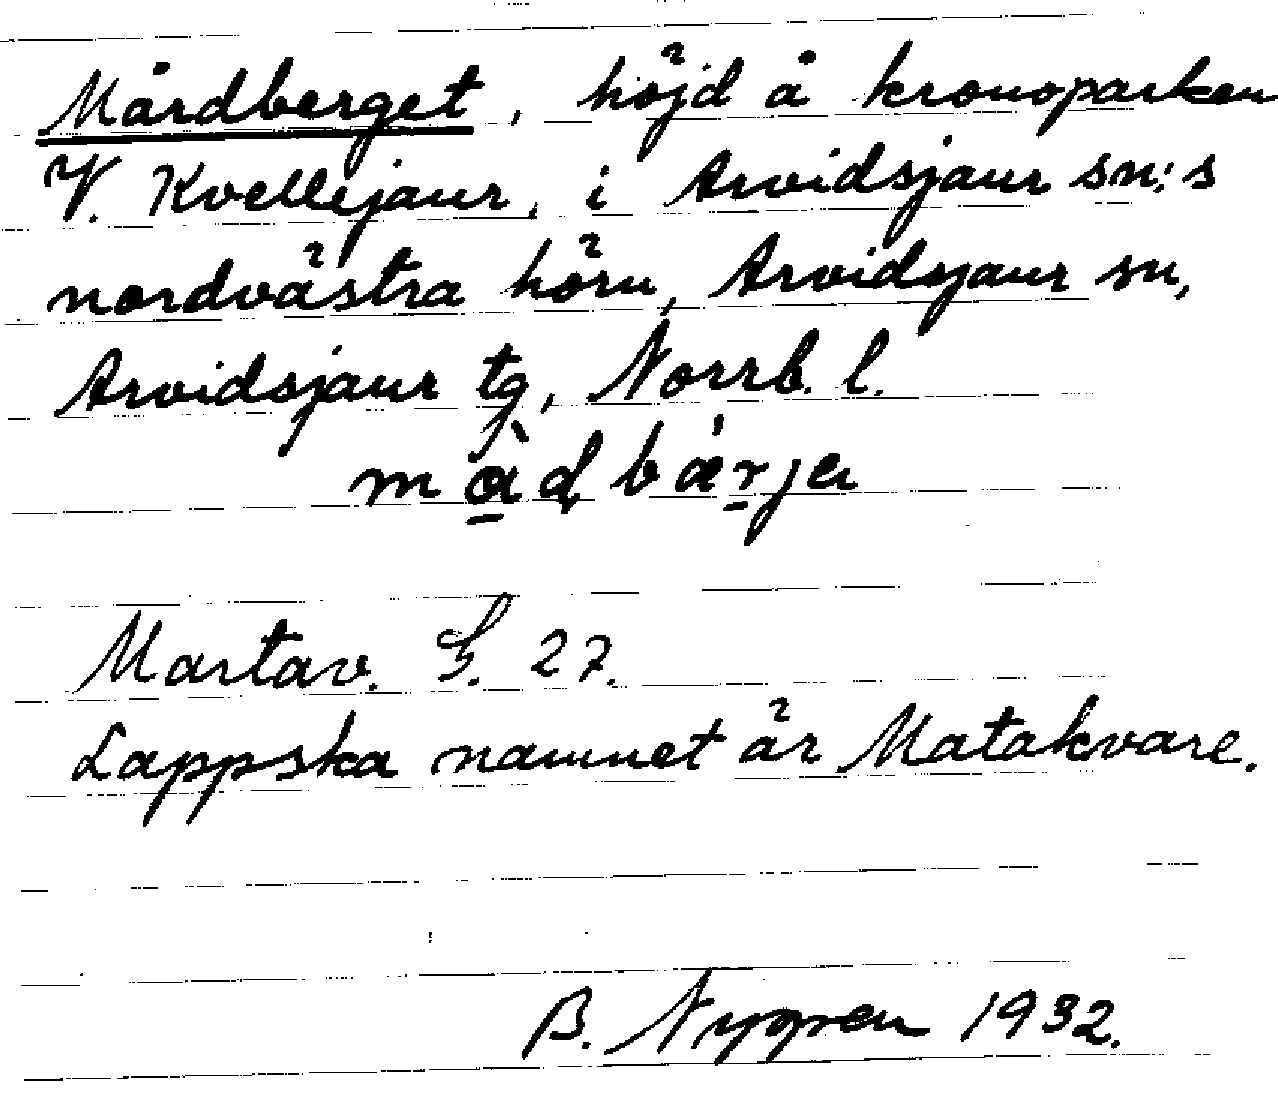 Mårdberget, höjd å kronoparken
V. Kvellejaur, i Arvidsjaur sn:s
nordvästra hörn, Arvidsjaur sn,
Arvidsjaur tg, Norrb. l.
Martav. S. 27.
Lappska namnet är Matakvare.
B. Nygren 1932.